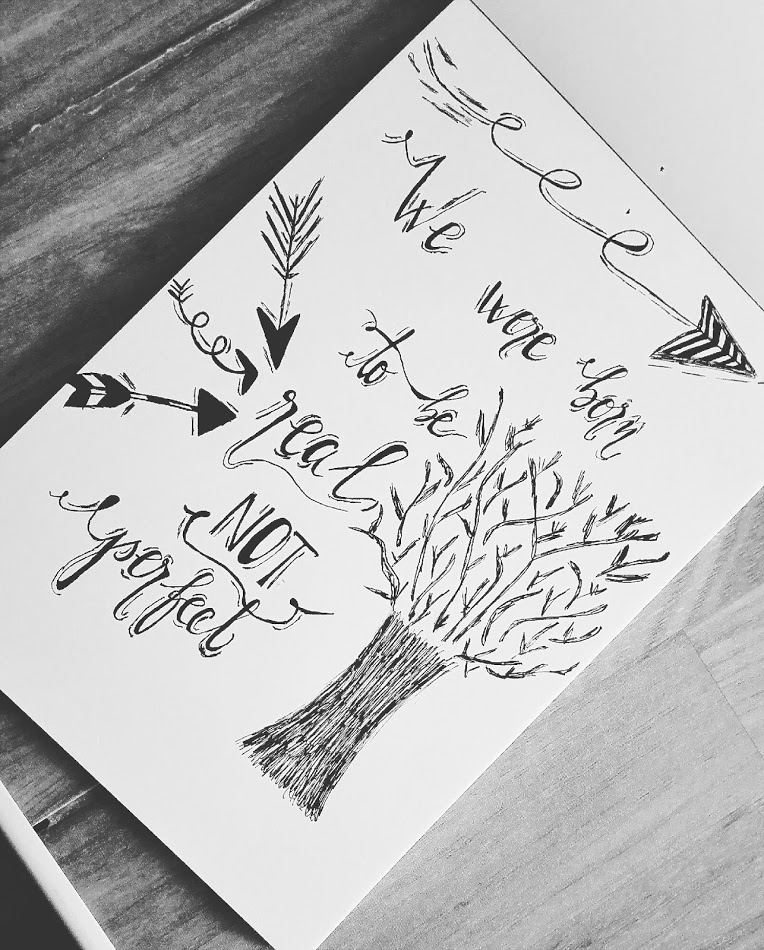 We
were born
to be
real
NOT
perfect